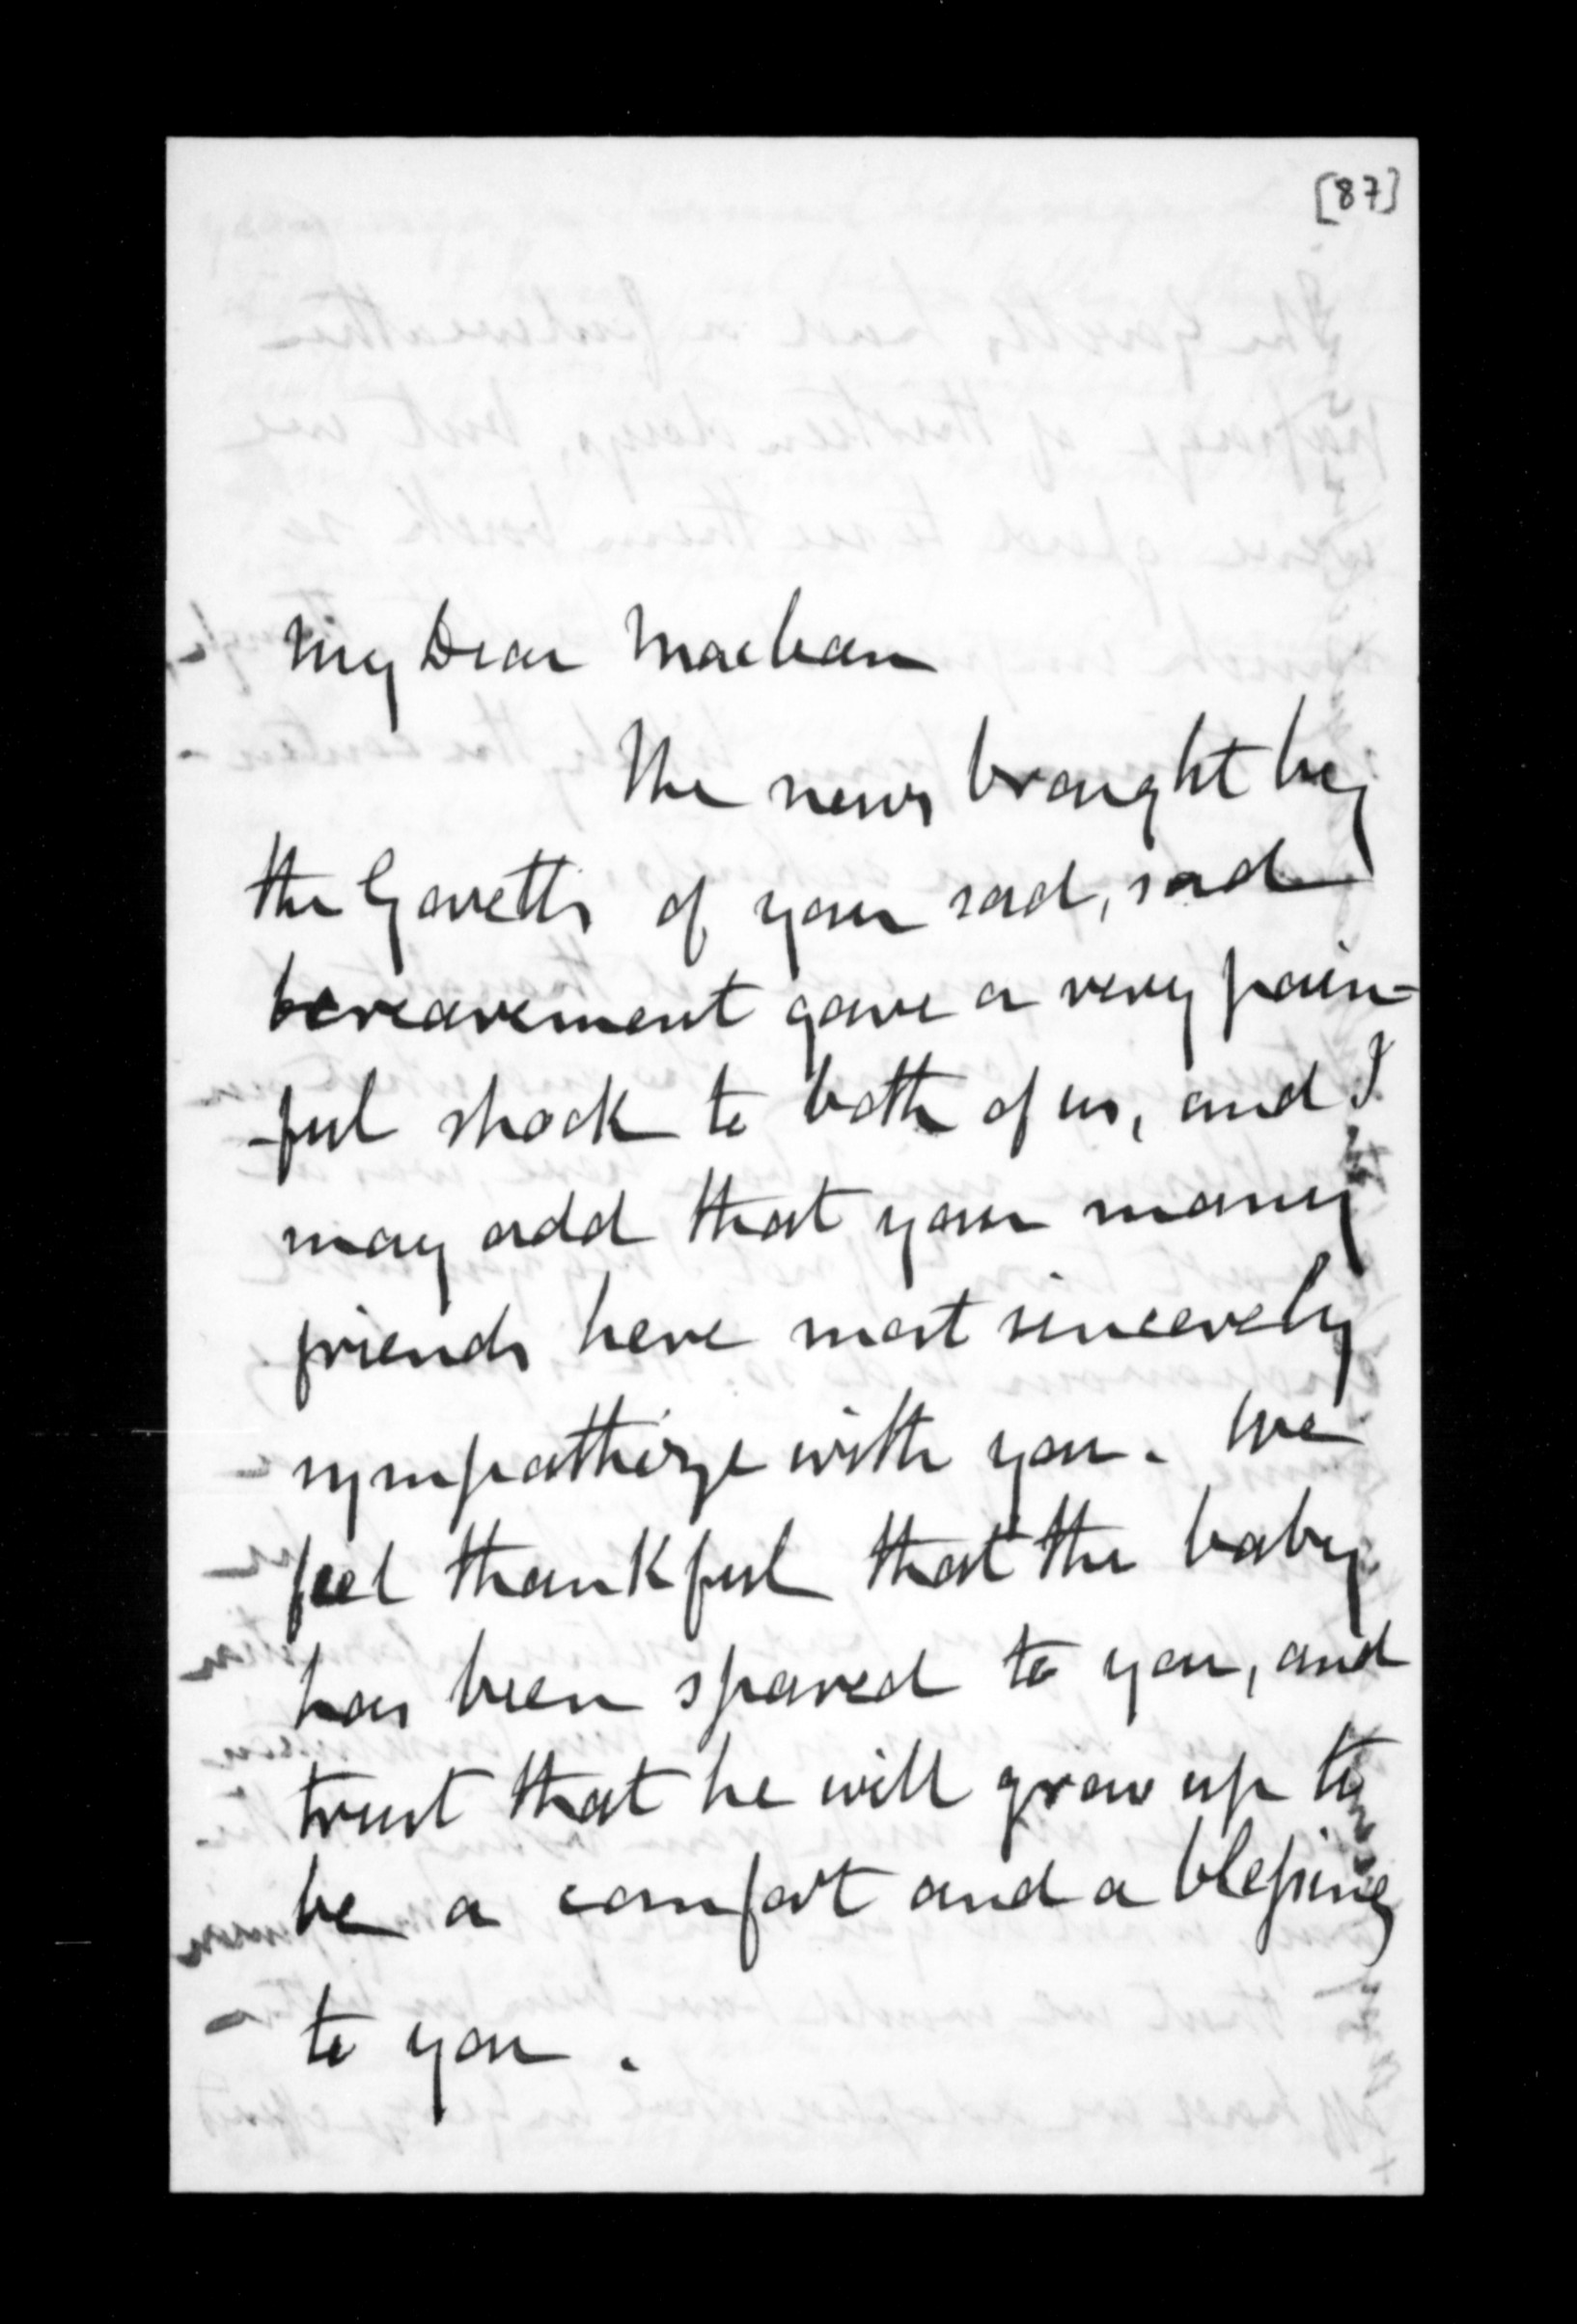 [87]
My Dear Maclean
The news brought by
the Gavetts of your sad, sad
bereavement gave a very pain-
ful shock to both of us, and I
may add that your many
friends here most sincerely
sympathize with you. We
feel thankful that the baby
has been spared to you, and
trust that he will grow up to
be a comfort and a blessing
to you.